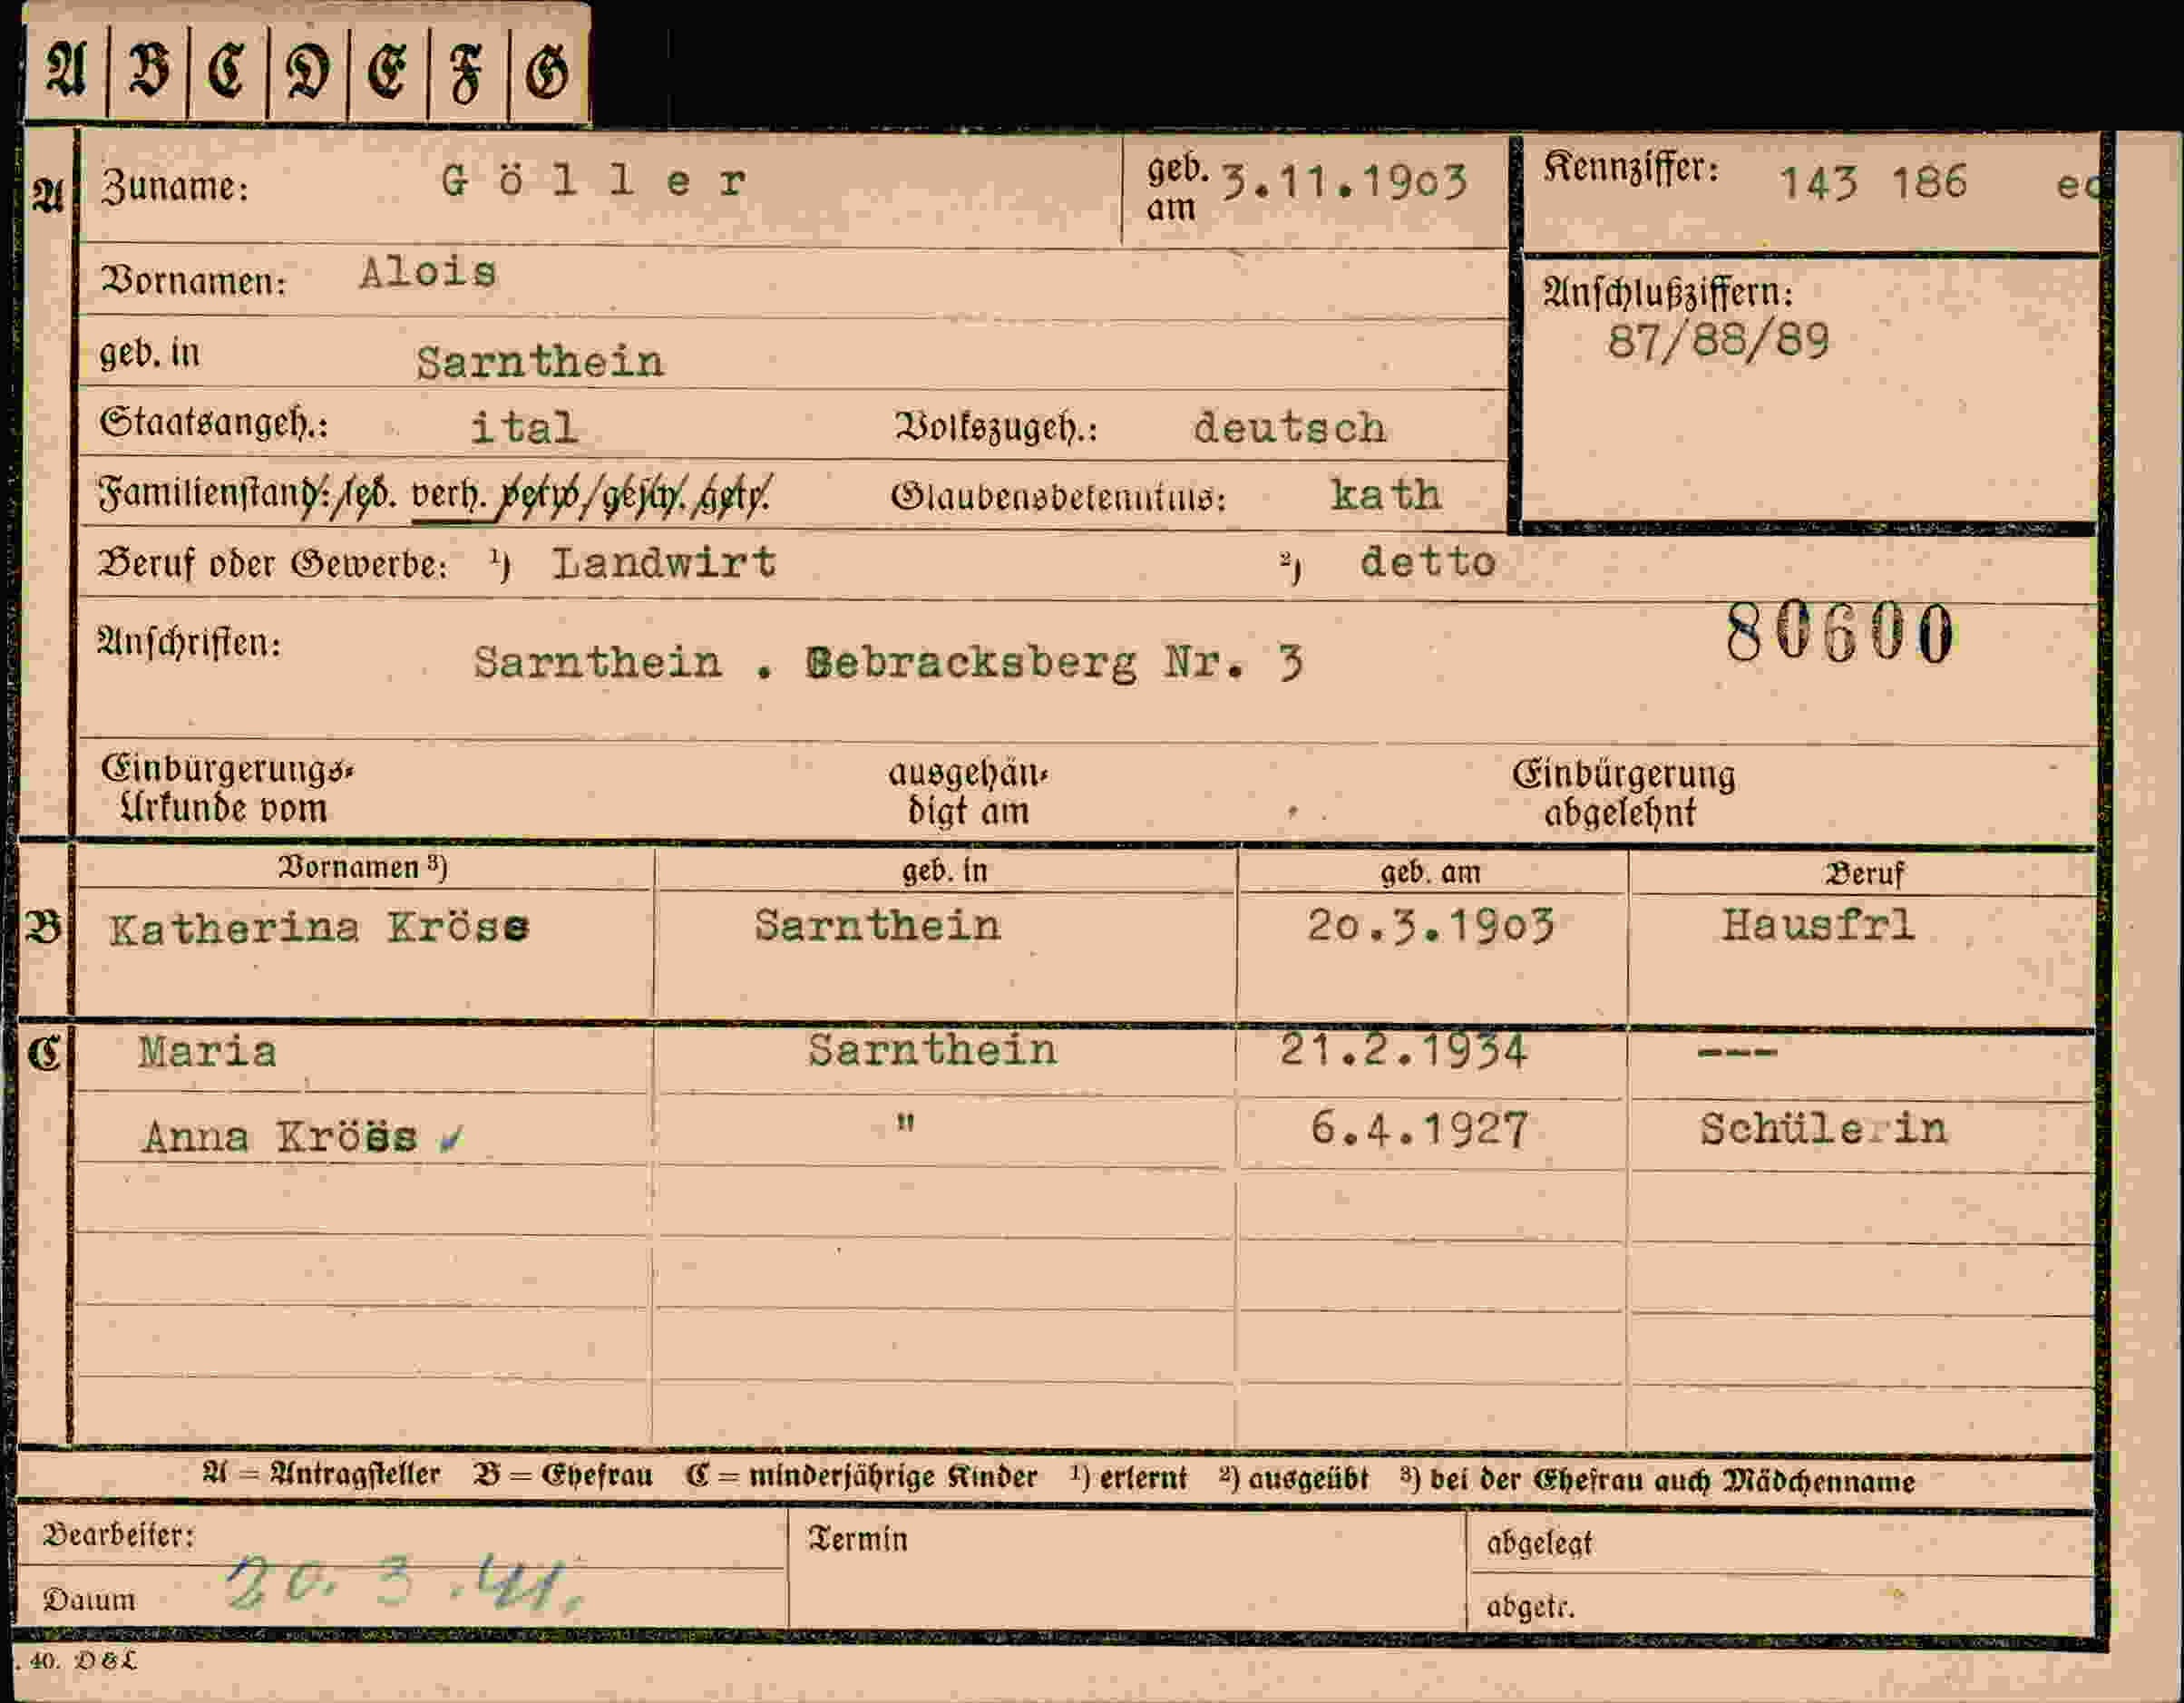 A B C D E F G
A Zuname: Göller geb. am 3.11.1903 Kennziffer: 143 186
Vornamen: Alois
Anschlußziffern:
87/88/89
geb. in Sarnthein
Staatsangeh.: ital Volkszugeh.: deutsch
Familienstand: led. verh. verw. gesch. getr. Glaubensbekenntnis: kath
Beruf oder Gewerbe: 1) Landwirt 2) detto
80600
Anschriften: Sarnthein . Gebracksberg Nr. 3
Einbürgerungs- ausgehän- Einbürgerung
Urkunde vom digt am abgelehnt
Vornamen 3) geb. in geb. am Beruf
B Katherina Kröss Sarnthein 20.3.1903 Hausfrl
C Maria Sarnthein 21.2.1934 ---
Anna Kröss ✓ " 6.4.1927 Schülerin
A = Antragsteller B = Ehefrau C = minderjährige Kinder 1) erlernt 2) ausgeübt 3) bei der Ehefrau auch Mädchenname
Bearbeiter: Termin abgelegt
Datum 20. 3. 41. abgetr.
. 40. D & L